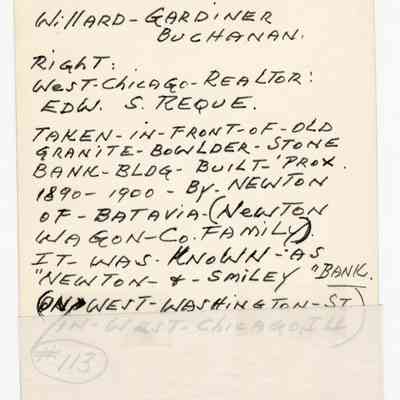 Willard-Gardiner
Buchanan.
Right:
West-Chicago-Realtor:
Edw. S. Reque.
Taken-in-front-of-old
Granite-Bowlder-Stone
Bank-Bldg-Built-'Prox.
1890-1900-By-Newton
of-Batavia-(Newton
Wagon-Co. Family).
It-was-known-as
"Newton-&-Smiley "Bank.
(on West-Washington-St)
(in-West-Chicago, Ill)
#113